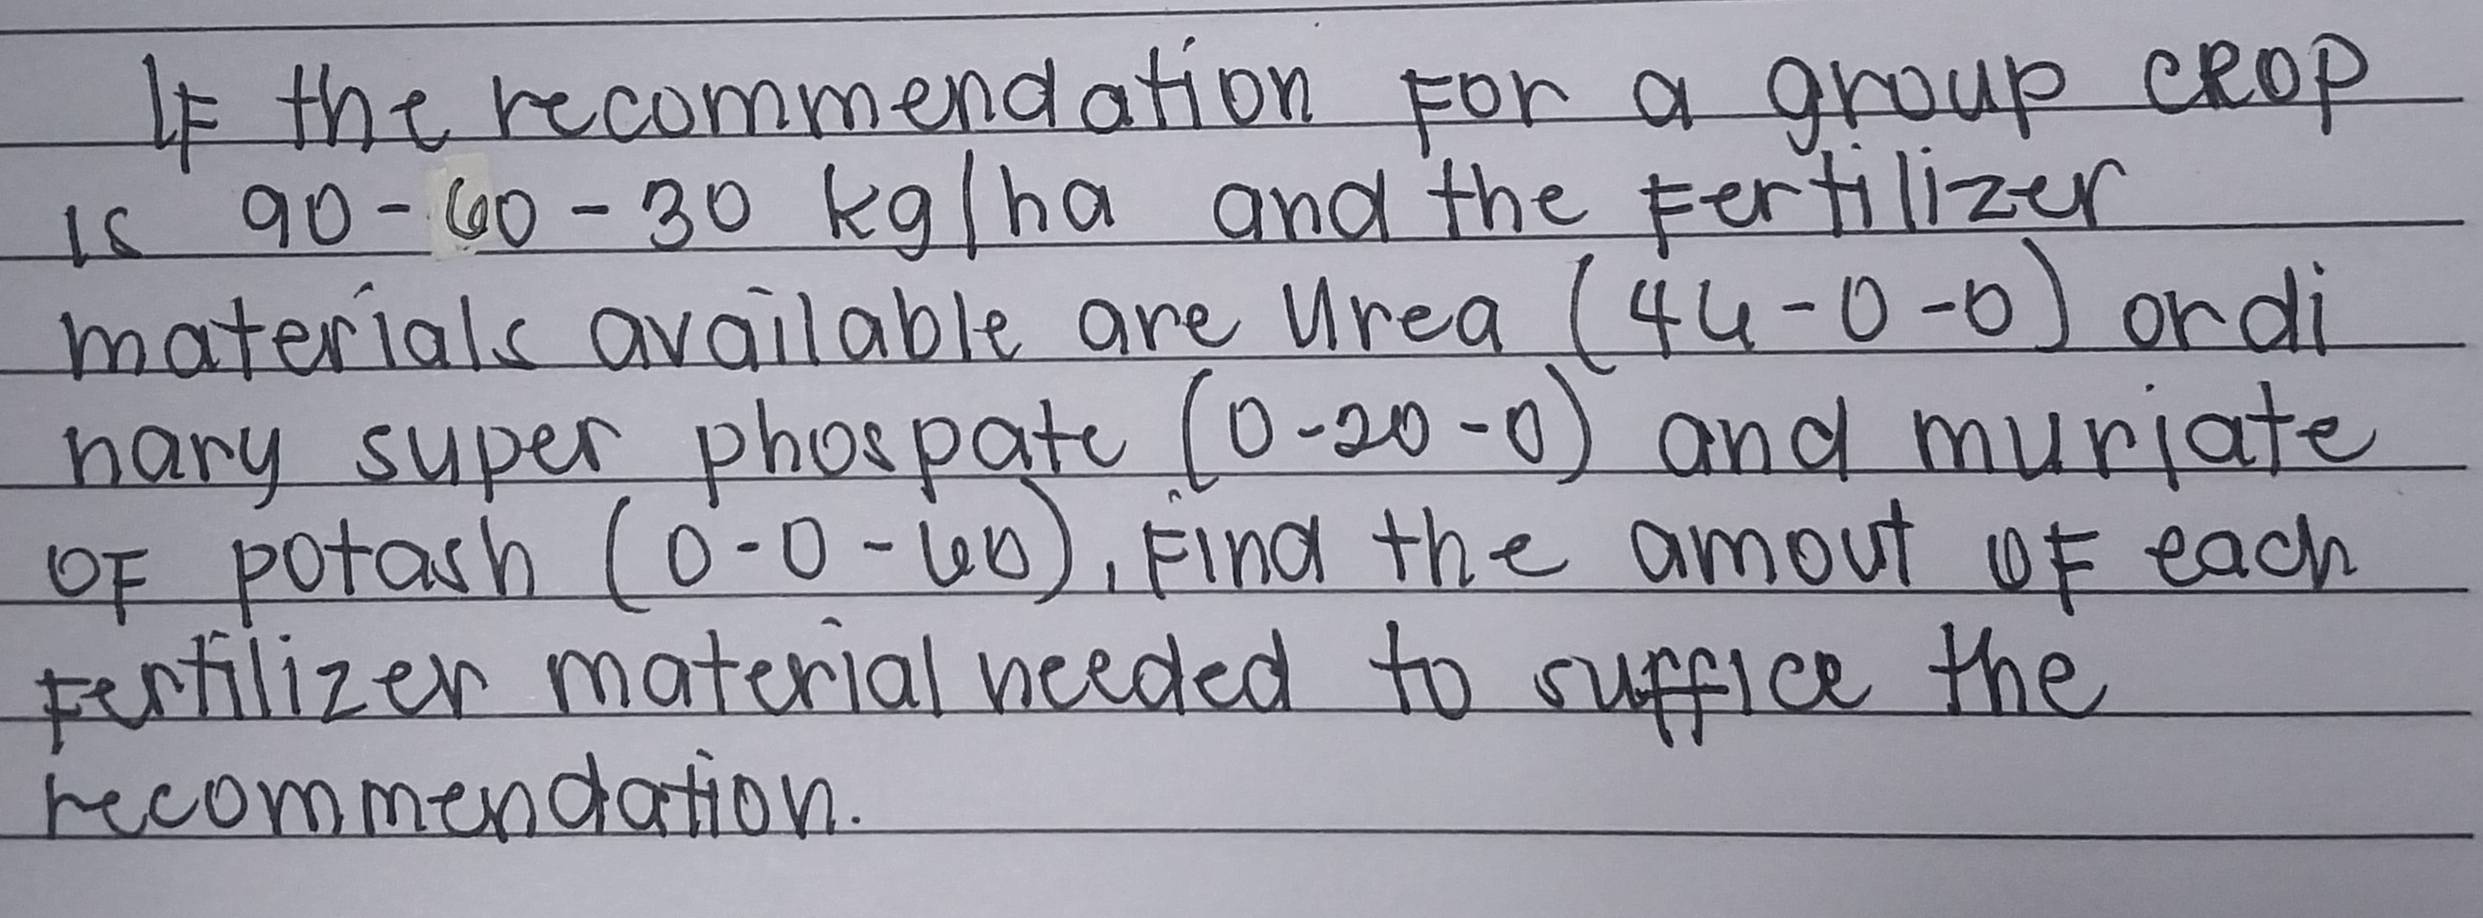 If the recommendation for a group crop
is 90-60-30 kg/ha and the fertilizer
materials available are Urea (46-0-0) ordi
nary super phospate (0-20-0) and muriate
of potash (0-0-60), Find the amout of each
fertilizer material needed to suffice the
recommendation.